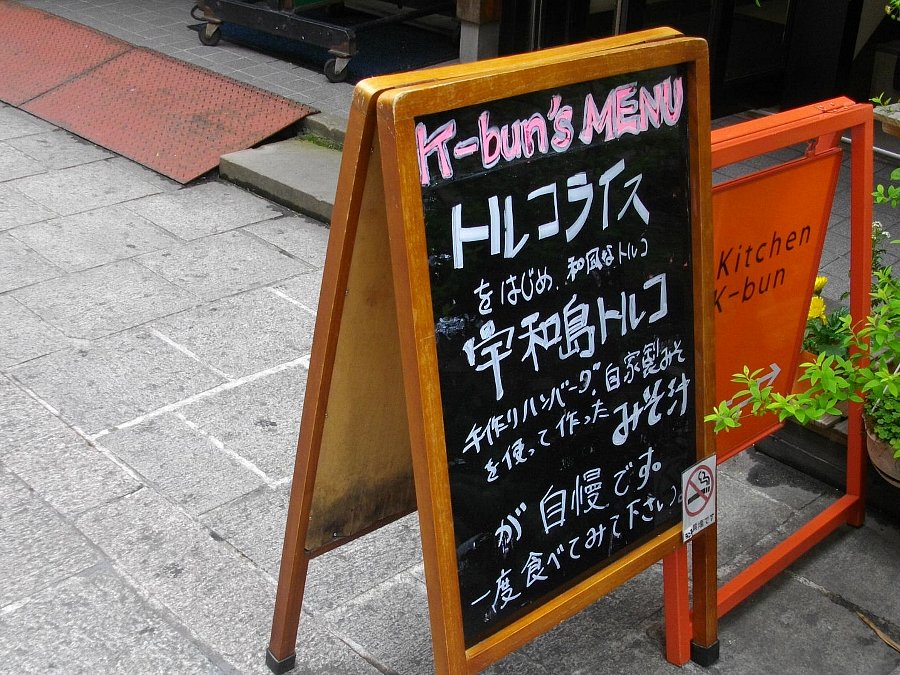 K-bun's MENU
トルコライス
をはじめ、和風なトルコ
宇和島トルコ
手作りハンバーグ、自家製みそ
を使って作ったみそ汁
が自慢です。
一度食べてみて下さい。
Kitchen
K-bun